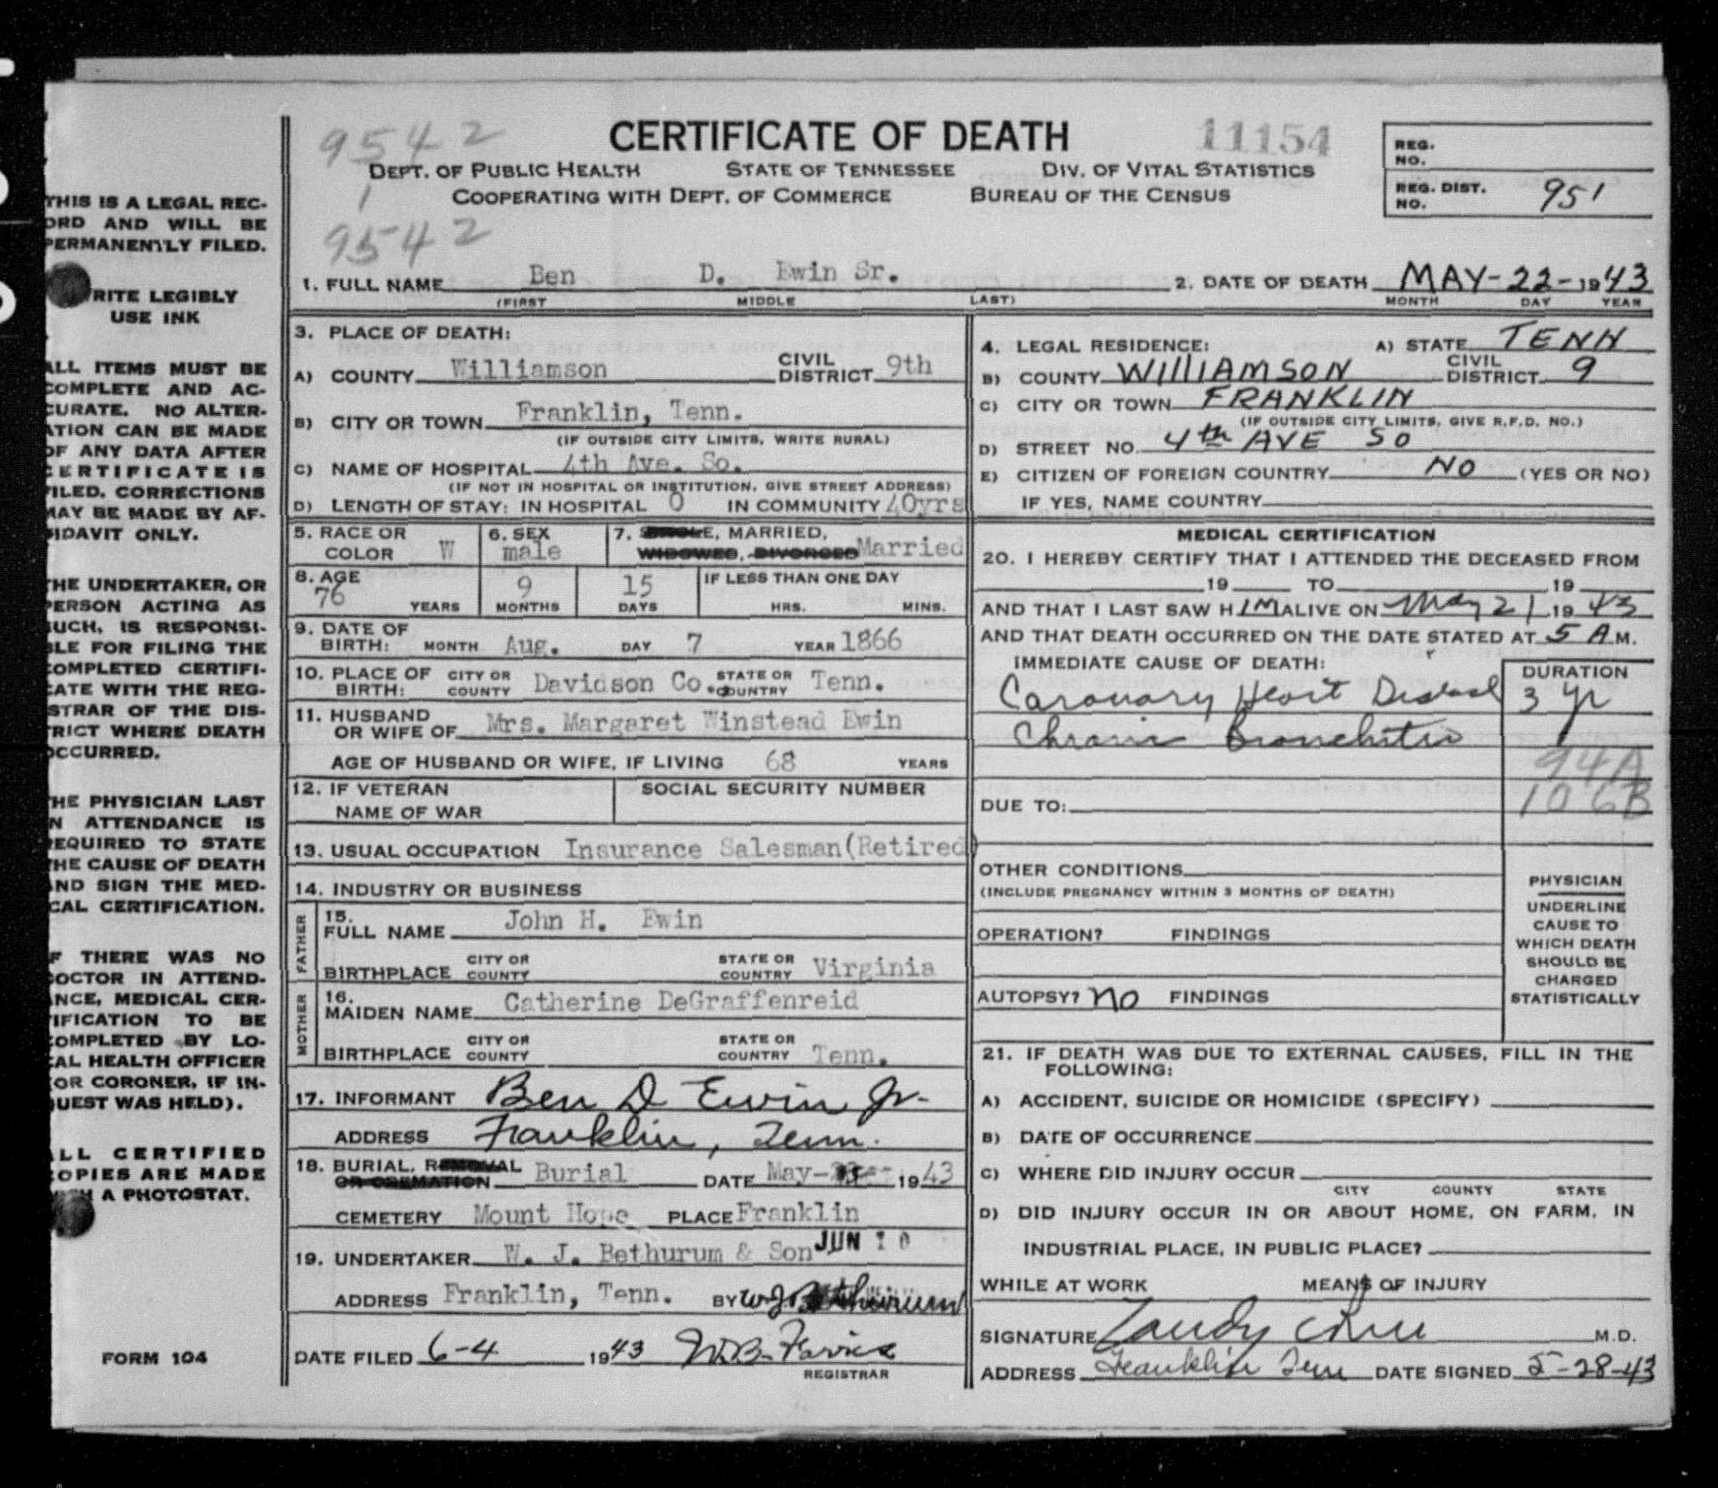 THIS IS A LEGAL REC-
ORD AND WILL BE
PERMANENTLY FILED.
RITE LEGIBLY
USE INK
ALL ITEMS MUST BE
COMPLETE AND AC-
CURATE. NO ALTER-
ATION CAN BE MADE
OF ANY DATA AFTER
CERTIFICATE IS
FILED. CORRECTIONS
MAY BE MADE BY AF-
FIDAVIT ONLY.
THE UNDERTAKER, OR
PERSON ACTING AS
SUCH, IS RESPONSI-
BLE FOR FILING THE
COMPLETED CERTIFI-
CATE WITH THE REG-
ISTRAR OF THE DIS-
TRICT WHERE DEATH
OCCURRED.
THE PHYSICIAN LAST
IN ATTENDANCE IS
REQUIRED TO STATE
THE CAUSE OF DEATH
AND SIGN THE MED-
ICAL CERTIFICATION.
IF THERE WAS NO
DOCTOR IN ATTEND-
ANCE, MEDICAL CER-
TIFICATION TO BE
COMPLETED BY LO-
CAL HEALTH OFFICER
(OR CORONER, IF IN-
QUEST WAS HELD).
ALL CERTIFIED
COPIES ARE MADE
A PHOTOSTAT.
FORM 104
9542
1
9542
CERTIFICATE OF DEATH 11154
DEPT. OF PUBLIC HEALTH STATE OF TENNESSEE DIV. OF VITAL STATISTICS
COOPERATING WITH DEPT. OF COMMERCE BUREAU OF THE CENSUS
REG. NO.
REG. DIST. NO. 951
1. FULL NAME Ben D. Ewin Sr. 2. DATE OF DEATH MAY-22-1943
(FIRST MIDDLE LAST) MONTH DAY YEAR
3. PLACE OF DEATH:
A) COUNTY Williamson CIVIL DISTRICT 9th
B) CITY OR TOWN Franklin, Tenn.
(IF OUTSIDE CITY LIMITS, WRITE RURAL)
C) NAME OF HOSPITAL 4th Ave. So.
(IF NOT IN HOSPITAL OR INSTITUTION, GIVE STREET ADDRESS)
D) LENGTH OF STAY: IN HOSPITAL 0 IN COMMUNITY 40yrs
5. RACE OR COLOR W 6. SEX male 7. SINGLE, MARRIED, WIDOWED, DIVORCED Married
8. AGE 76 YEARS 9 MONTHS 15 DAYS IF LESS THAN ONE DAY HRS. MINS.
9. DATE OF BIRTH: MONTH Aug. DAY 7 YEAR 1866
10. PLACE OF BIRTH: CITY OR COUNTY Davidson Co. STATE OR COUNTRY Tenn.
11. HUSBAND OR WIFE OF Mrs. Margaret Winstead Ewin
AGE OF HUSBAND OR WIFE, IF LIVING 68 YEARS
12. IF VETERAN NAME OF WAR SOCIAL SECURITY NUMBER
13. USUAL OCCUPATION Insurance Salesman(Retired)
14. INDUSTRY OR BUSINESS
FATHER 15. FULL NAME John H. Ewin
BIRTHPLACE CITY OR COUNTY STATE OR COUNTRY Virginia
MOTHER 16. MAIDEN NAME Catherine DeGraffenreid
BIRTHPLACE CITY OR COUNTY STATE OR COUNTRY Tenn.
17. INFORMANT Ben D Ewin Jr.
ADDRESS Franklin, Tenn.
18. BURIAL, REMOVAL OR CREMATION Burial DATE May- 1943
CEMETERY Mount Hope PLACE Franklin
19. UNDERTAKER W. J. Bethurum & Son JUN 10
ADDRESS Franklin, Tenn. BY W J Bethurum
DATE FILED 6-4 1943
REGISTRAR
4. LEGAL RESIDENCE: A) STATE TENN
B) COUNTY WILLIAMSON CIVIL DISTRICT 9
C) CITY OR TOWN FRANKLIN
(IF OUTSIDE CITY LIMITS, GIVE R.F.D. NO.)
D) STREET NO. 4th AVE SO
E) CITIZEN OF FOREIGN COUNTRY NO (YES OR NO)
IF YES, NAME COUNTRY
MEDICAL CERTIFICATION
20. I HEREBY CERTIFY THAT I ATTENDED THE DECEASED FROM
19 TO 19
AND THAT I LAST SAW HIM ALIVE ON May 21 1943
AND THAT DEATH OCCURRED ON THE DATE STATED AT 5 A.M.
IMMEDIATE CAUSE OF DEATH: DURATION
Coronary Heart Disease 3 yr
Chronic Bronchitis
94A
DUE TO: 106B
OTHER CONDITIONS
(INCLUDE PREGNANCY WITHIN 3 MONTHS OF DEATH)
OPERATION? FINDINGS
AUTOPSY? no FINDINGS
PHYSICIAN
UNDERLINE
CAUSE TO
WHICH DEATH
SHOULD BE
CHARGED
STATISTICALLY
21. IF DEATH WAS DUE TO EXTERNAL CAUSES, FILL IN THE
FOLLOWING:
A) ACCIDENT, SUICIDE OR HOMICIDE (SPECIFY)
B) DATE OF OCCURRENCE
C) WHERE DID INJURY OCCUR
CITY COUNTY STATE
D) DID INJURY OCCUR IN OR ABOUT HOME, ON FARM, IN
INDUSTRIAL PLACE, IN PUBLIC PLACE?
WHILE AT WORK MEANS OF INJURY
SIGNATURE M.D.
ADDRESS Franklin Tenn DATE SIGNED 5-28-43